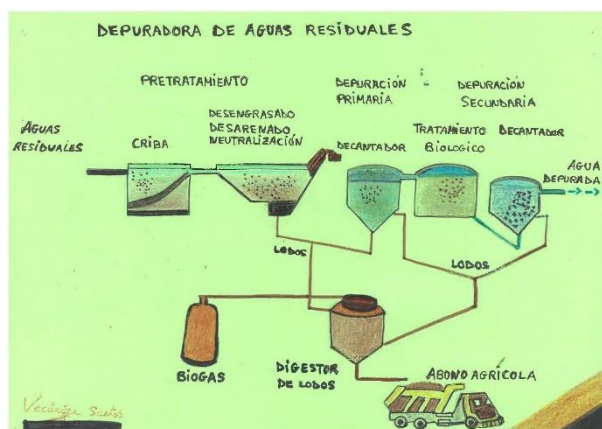 DEPURADORA DE AGUAS RESIDUALES
PRETRATAMIENTO
DEPURACIÓN
PRIMARIA
DEPURACIÓN
SECUNDARIA
AGUAS
RESIDUALES
CRIBA
DESENGRASADO
DESARENADO
NEUTRALIZACIÓN
DECANTADOR
TRATAMIENTO
BIOLOGICO
DECANTADOR
AGUA
DEPURADA
LODOS
LODOS
BIOGAS
DIGESTOR
DE LODOS
ABONO AGRÍCOLA
Santos